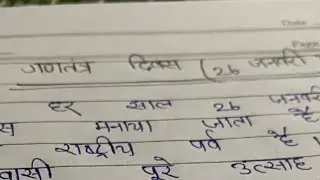 Date
Page
गणतंत्र दिवस (26 जनवरी
हर साल 26 जनवरी
मनाया जाता है
राष्ट्रीय पर्व है।
पूरे उत्साह